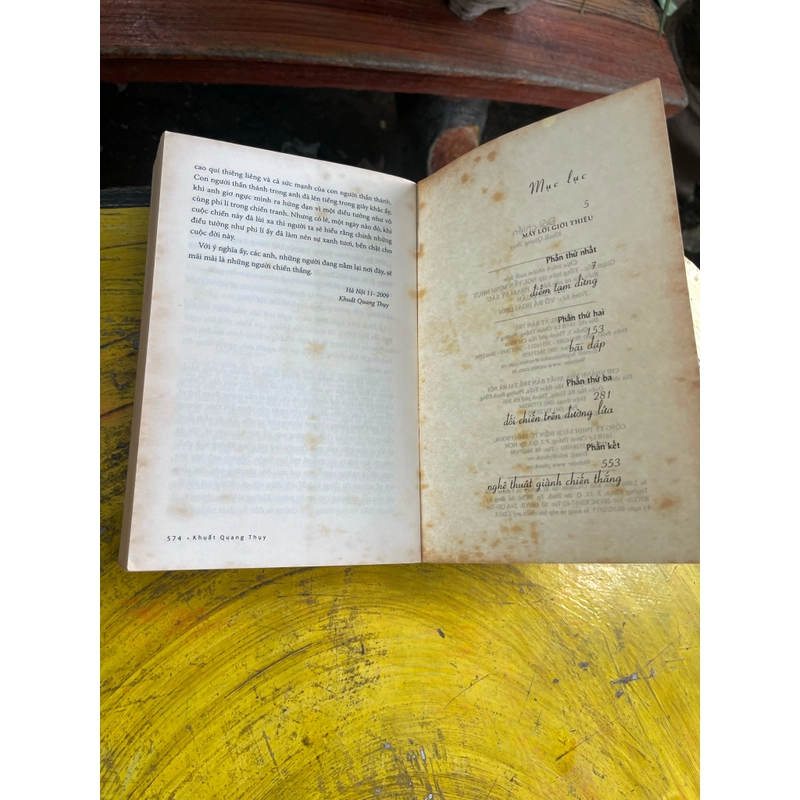 cao quí thiêng liêng và cả sức mạnh của con người thần thánh.
Con người thần thánh trong anh đã lên tiếng trong giây khắc ấy,
khi anh giơ ngực mình ra hứng đạn vì một điều tưởng như vô
cùng phi lí trong chiến tranh. Nhưng có lẽ, một ngày nào đó, khi
cuộc chiến này đã lùi xa thì người ta sẽ hiểu rằng chính những
điều tưởng như phi lí ấy đã làm nên sự xanh tươi, bền chặt cho
cuộc đời này.
Với ý nghĩa ấy, các anh, những người đang nằm lại nơi đây, sẽ
mãi mãi là những người chiến thắng.
Hà Nội 11-2009
Khuất Quang Thụy
574 • Khuất Quang Thụy
Mục lục
5
MẤY LỜI GIỚI THIỆU
Phần thứ nhất
7
điểm tạm dừng
Phần thứ hai
153
bãi đáp
Phần thứ ba
281
đối chiến trên đường lửa
Phần kết
553
nghệ thuật giành chiến thắng